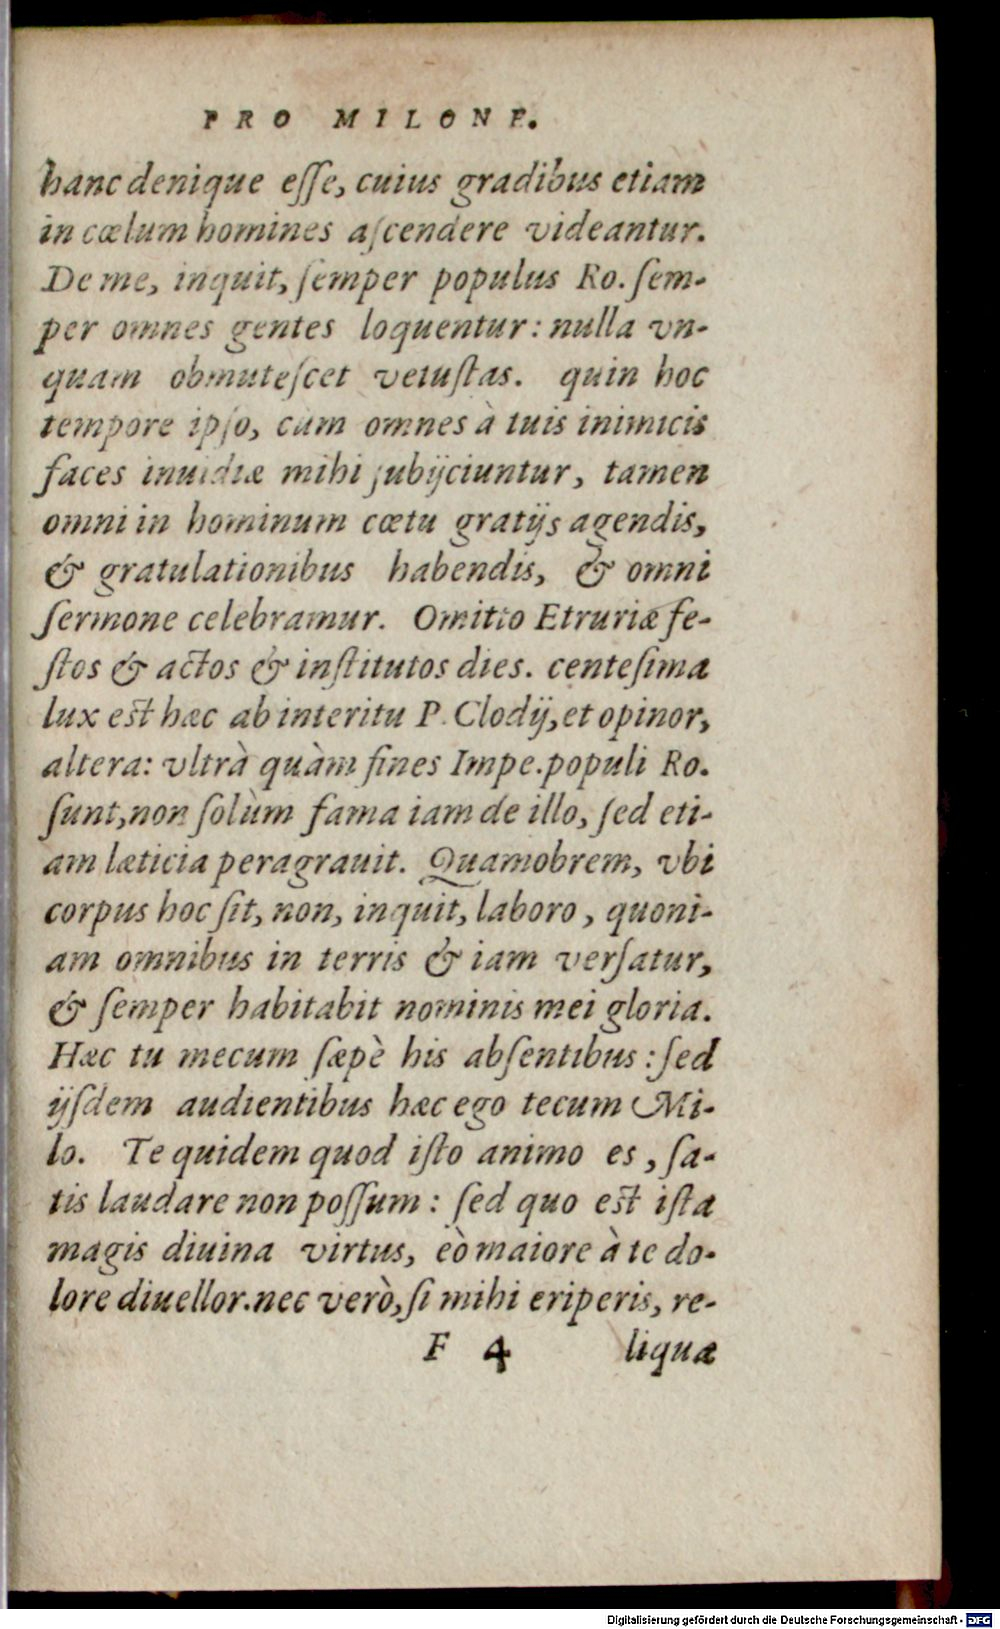 PRO MILONE.
hanc denique eſſe, cuius gradibus etiam
in cœlum homines aſcendere videantur.
De me, inquit, ſemper populus Ro. ſem-
per omnes gentes loquentur: nulla vn-
quam obmuteſcet vetuſtas. quin hoc
tempore ipſo, cum omnes à tuis inimicis
faces inuidiæ mihi ſubijciuntur, tamen
omni in hominum cœtu gratijs agendis,
& gratulationibus habendis, & omni
ſermone celebramur. Omitto Etruriæ fe-
ſtos & actos & inſtitutos dies. centeſima
lux eſt hæc ab interitu P. Clodij, et opinor,
altera: vltrà quàm fines Impe. populi Ro.
ſunt, non ſolùm fama iam de illo, ſed eti-
am læticia peragrauit. Quamobrem, vbi
corpus hoc ſit, non, inquit, laboro, quoni-
am omnibus in terris & iam verſatur,
& ſemper habitabit nominis mei gloria.
Hæc tu mecum ſæpè his abſentibus: ſed
ijſdem audientibus hæc ego tecum Mi-
lo. Te quidem quod iſto animo es, ſa-
tis laudare non poſſum: ſed quo eſt iſta
magis diuina virtus, eò maiore à te do-
lore diuellor. nec verò, ſi mihi eriperis, re-
F 4 liquæ
Digitalisierung gefördert durch die Deutsche Forschungsgemeinschaft - DFG